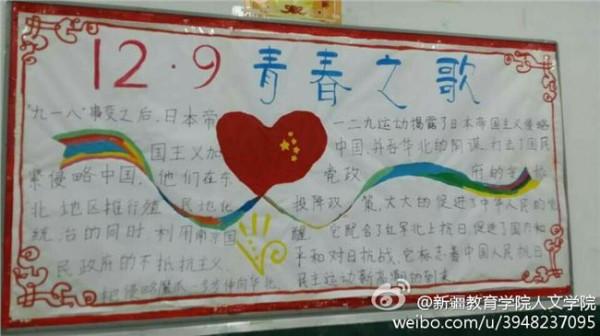 12·9 青春之歌
"九一八"事变之后,日本帝
国主义加
紧侵略中国,他们在东
北地区推行殖民地化
统治的同时利用南京国
民政府的不抵抗主义,
把侵略魔爪一步步伸向华北
一二九运动揭露了日本帝国主义侵略
中国,并吞华北的阴谋,打击了国民
党政府的
投降政策,大大的促进了中华人民的觉
醒。它配合了红军北上抗日,促进了国内和
平和对日抗战。它标志着中国人民抗日
民主运动新高潮的到来
@新疆教育学院人文学院
weibo.com/u/3948237095